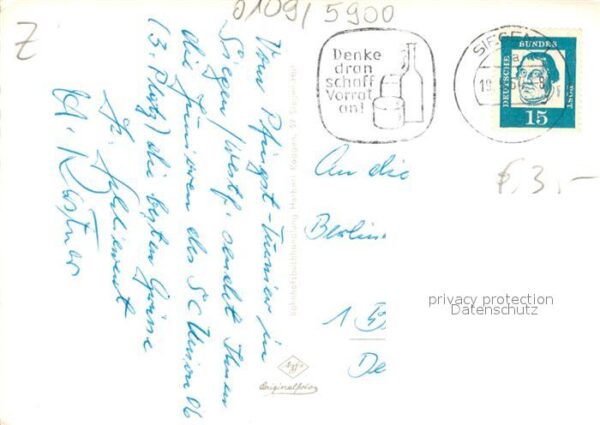 0109/5900
Z
Vom Pfingst-Turnier in
Siegen/Westf. sendet Ihnen
die Junioren des SC Union 06
(3. Platz) die besten Grüsse
H. Kästner
Denke
dran
schaff
Vorrat
an!
SIEGEN
DEUTSCHE
BUNDES
POST
15
An die
Berlin
1
De
3,-
privacy protection
Datenschutz
Agfa
Originalfoto